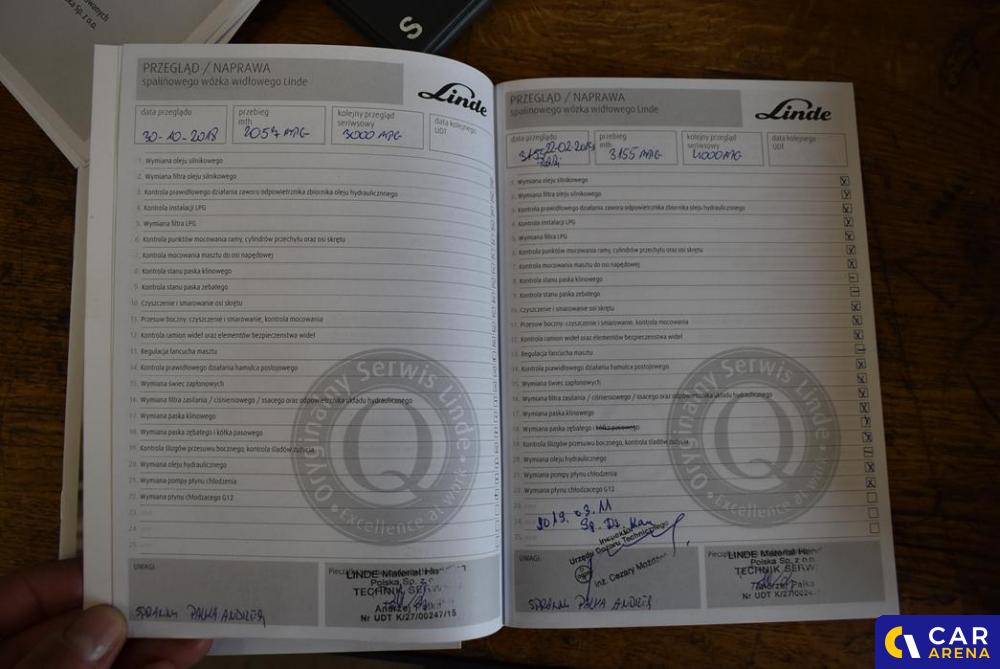 Sp. z o.o.
S
PRZEGLĄD / NAPRAWA
spalinowego wózka widłowego Linde
Linde
data przeglądu
przebieg
mth
kolejny przegląd
serwisowy
data kolejnego
UDT
30-10-2018
2057 MG
3000 MG
1. Wymiana oleju silnikowego
2. Wymiana filtra oleju silnikowego
3. Kontrola prawidłowego działania zaworu odpowietrznika zbiornika oleju hydraulicznego
4. Kontrola instalacji LPG
5. Wymiana filtra LPG
6. Kontrola punktów mocowania ramy, cylindrów przechyłu oraz osi skrętu
7. Kontrola mocowania masztu do osi napędowej
8. Kontrola stanu paska klinowego
9. Kontrola stanu paska zębatego
10. Czyszczenie i smarowanie osi skrętu
11. Przesuw boczny: czyszczenie i smarowanie, kontrola mocowania
12. Kontrola ramion wideł oraz elementów bezpieczeństwa wideł
13. Regulacja łańcucha masztu
14. Kontrola prawidłowego działania hamulca postojowego
15. Wymiana świec zapłonowych
16. Wymiana filtra zasilania / ciśnieniowego / ssącego oraz odpowietrznika układu hydraulicznego
17. Wymiana paska klinowego
18. Wymiana paska zębatego i kółka pasowego
19. Kontrola ślizgów przesuwu bocznego, kontrola śladów zużycia
20. Wymiana oleju hydraulicznego
21. Wymiana pompy płynu chłodzenia
22. Wymiana płynu chłodzącego G12
23.
24.
25.
Oryginalny Serwis Linde
Q
Excellence at work
UWAGI:
SPRAWNY PALKA ANDRZEJ
LINDE Material Han
Polska Sp. z o
TECHNIK SERW
Andrzej Pałka
Nr UDT K/27/00247/15
PRZEGLĄD / NAPRAWA
spalinowego wózka widłowego Linde
Linde
data przeglądu
przebieg
mth
kolejny przegląd
serwisowy
data kolejnego
UDT
3155 22-02-2019
3155 MG
4000 MG
1. Wymiana oleju silnikowego
2. Wymiana filtra oleju silnikowego
3. Kontrola prawidłowego działania zaworu odpowietrznika zbiornika oleju hydraulicznego
4. Kontrola instalacji LPG
5. Wymiana filtra LPG
6. Kontrola punktów mocowania ramy, cylindrów przechyłu oraz osi skrętu
7. Kontrola mocowania masztu do osi napędowej
8. Kontrola stanu paska klinowego
9. Kontrola stanu paska zębatego
10. Czyszczenie i smarowanie osi skrętu
11. Przesuw boczny: czyszczenie i smarowanie, kontrola mocowania
12. Kontrola ramion wideł oraz elementów bezpieczeństwa wideł
13. Regulacja łańcucha masztu
14. Kontrola prawidłowego działania hamulca postojowego
15. Wymiana świec zapłonowych
16. Wymiana filtra zasilania / ciśnieniowego / ssącego oraz odpowietrznika układu hydraulicznego
17. Wymiana paska klinowego
18. Wymiana paska zębatego i kółka pasowego
19. Kontrola ślizgów przesuwu bocznego, kontrola śladów zużycia
20. Wymiana oleju hydraulicznego
21. Wymiana pompy płynu chłodzenia
22. Wymiana płynu chłodzącego G12
24.
25.
Oryginalny Serwis Linde
Q
Excellence at work
2019.03.11
Inspektor
Urzędu Dozoru Technicznego
inż. Cezary
UWAGI:
SPRAWNY PALKA ANDRZEJ
LINDE Material Han
Polska Sp. z o.o
TECHNIK SERW
Andrzej Pałka
Nr UDT K/27/0024
CAR
ARENA